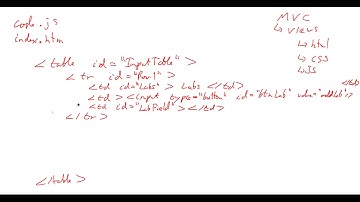 code.js
index.htm
<table id="InputTable">
<tr id="Row1">
<td id="Labs"> Labs </td>
<td><input type="button" id="btnLab" value="addLab"/>
</td>
<td id="LabField"></td>
</tr>
</table>
MVC
↳ views
↳ html
↳ css
↳ JS